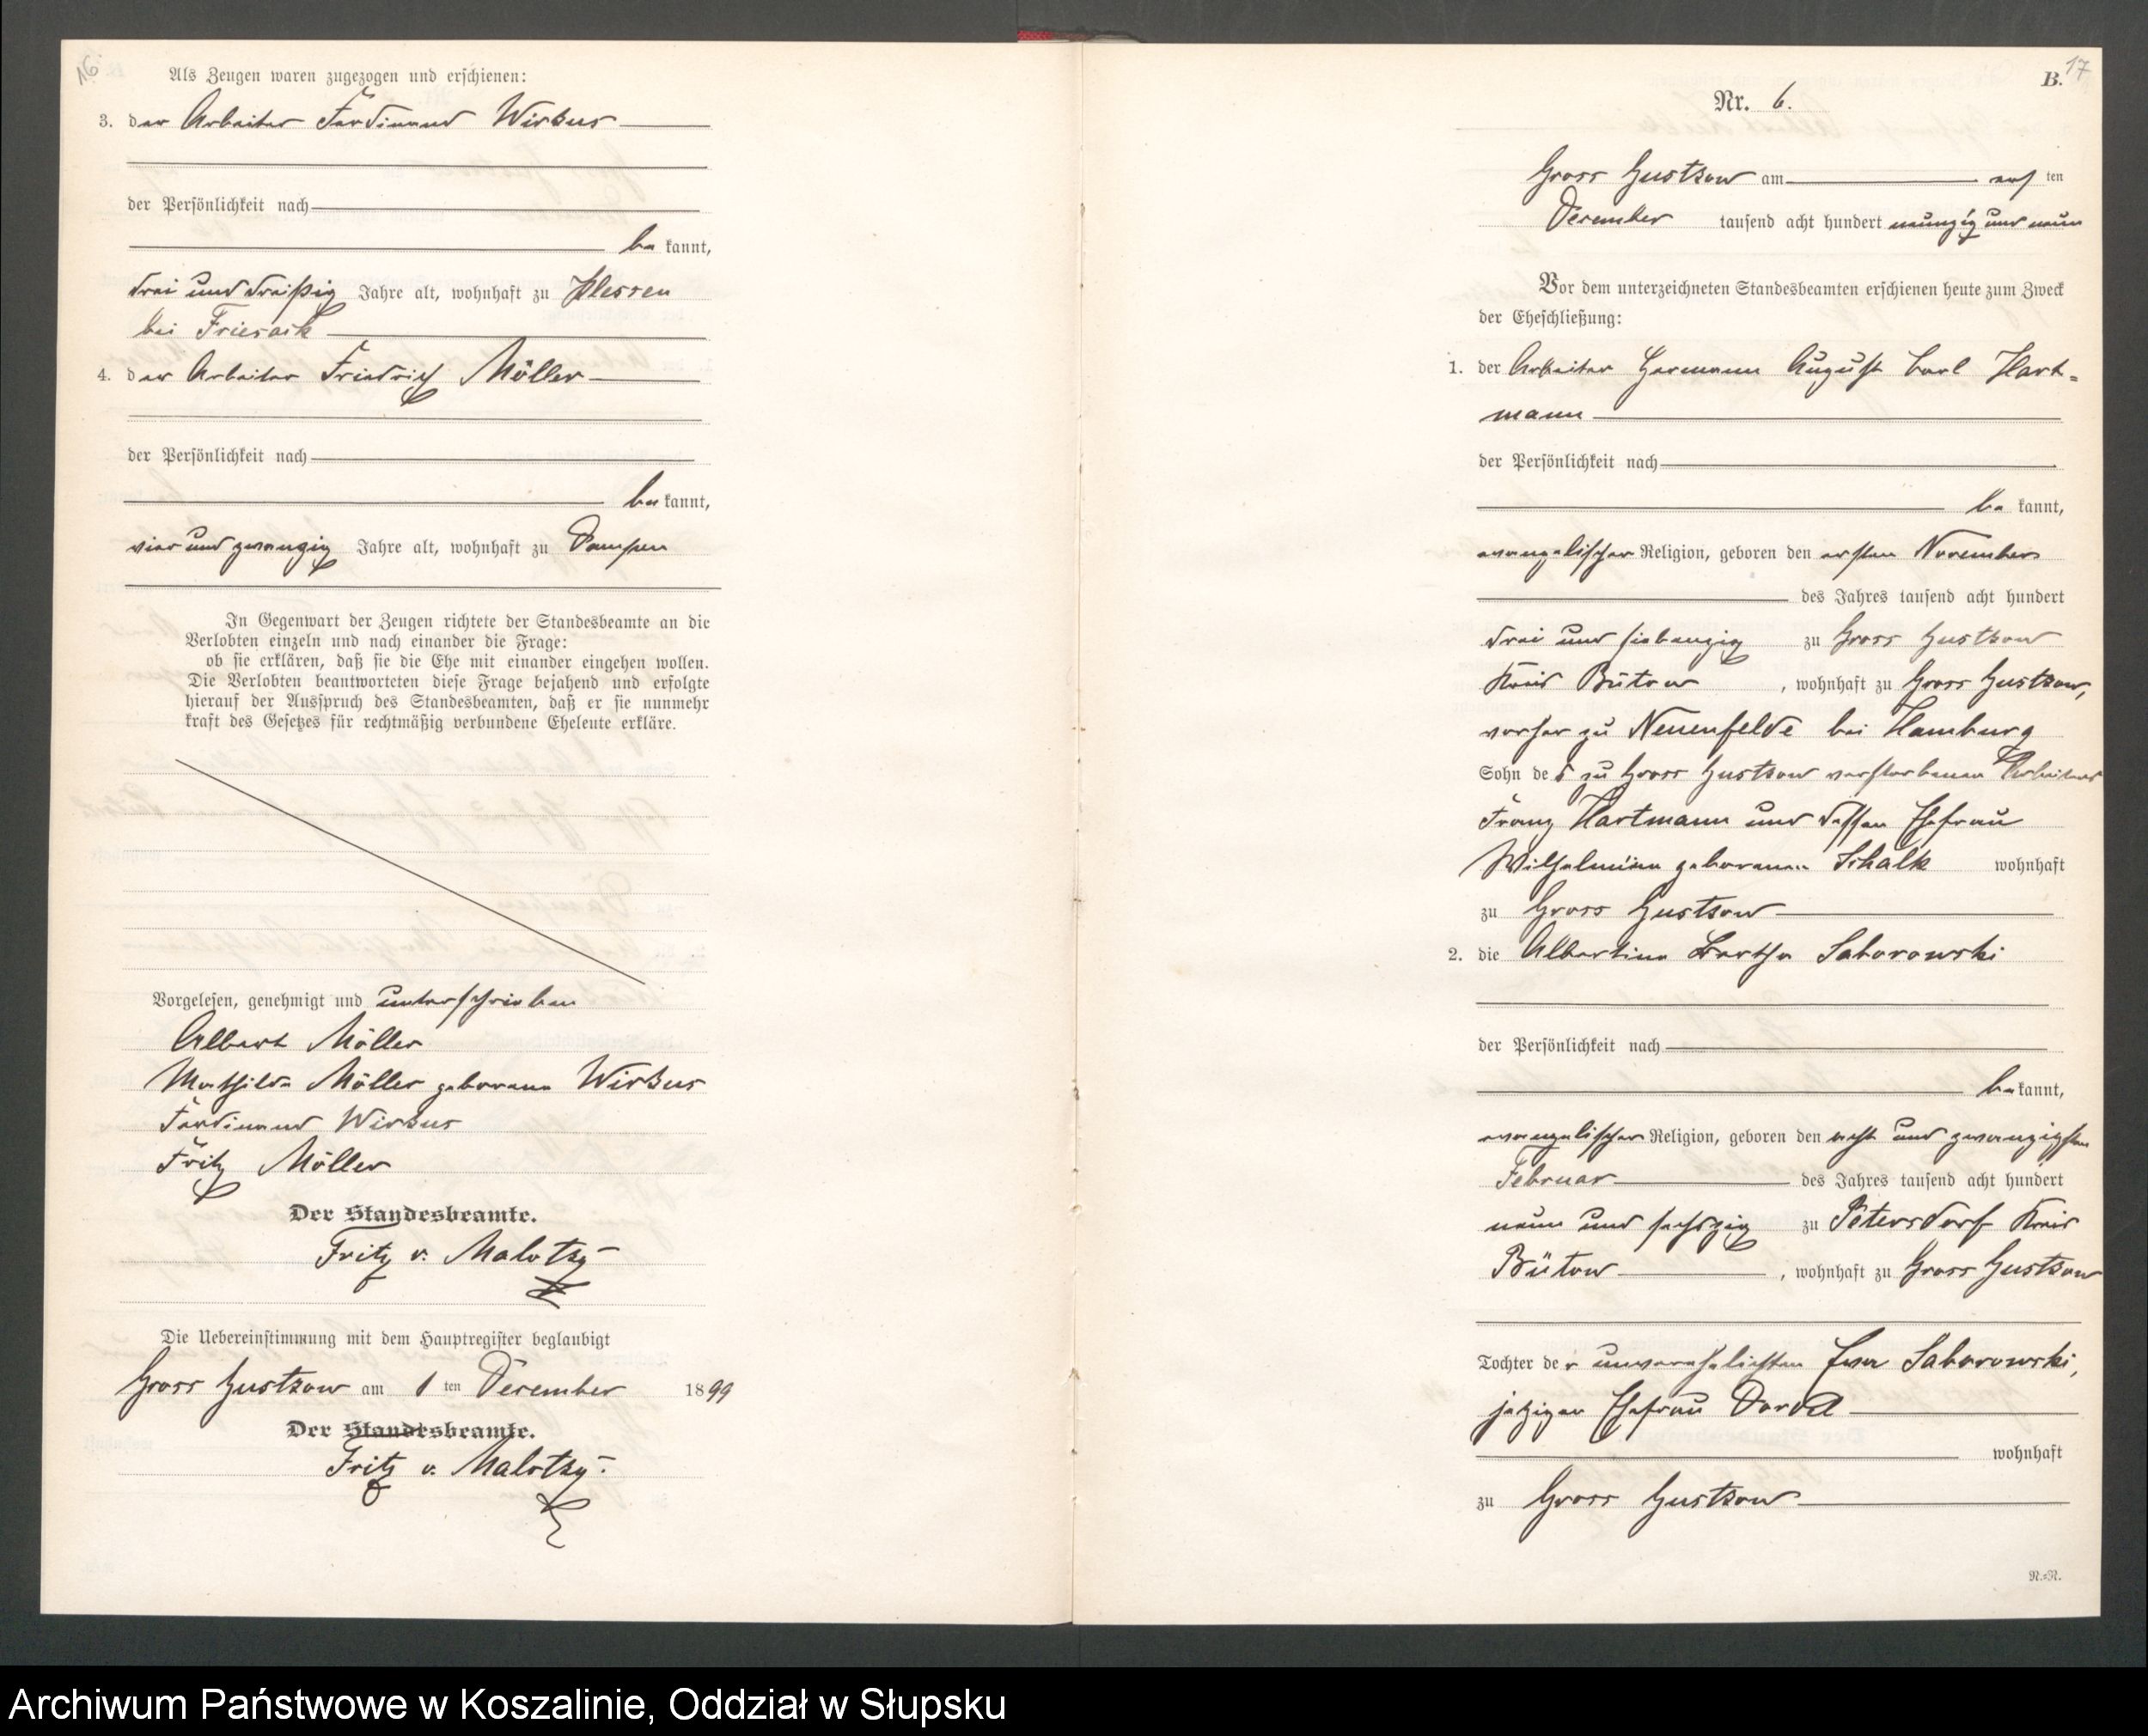 16.
Als Zeugen waren zugezogen und erschienen:
3. der Arbeiter Ferdinand Wirkus
der Persönlichkeit nach
be kannt,
drei und dreißig Jahre alt, wohnhaft zu Klessen
bei Friesack
4. der Arbeiter Friedrich Möller
der Persönlichkeit nach
be kannt,
vier und zwanzig Jahre alt, wohnhaft zu Dampen
In Gegenwart der Zeugen richtete der Standesbeamte an die
Verlobten einzeln und nach einander die Frage:
ob sie erklären, daß sie die Ehe mit einander eingehen wollen.
Die Verlobten beantworteten diese Frage bejahend und erfolgte
hierauf der Ausspruch des Standesbeamten, daß er sie nunmehr
kraft des Gesetzes für rechtmäßig verbundene Eheleute erkläre.
Vorgelesen, genehmigt und unterschrieben
Albert Möller
Mathilde Möller geborene Wirkus
Ferdinand Wirkus
Fritz Möller
Der Standesbeamte.
Fritz v. Malotky
Die Uebereinstimmung mit dem Hauptregister beglaubigt
Gross Gustkow am 1 ten Dezember 1899
Der Standesbeamte.
Fritz v. Malotky.
B. 17
Nr. 6.
Gross Gustkow am acht ten
Dezember tausend acht hundert neunzig und neun
Vor dem unterzeichneten Standesbeamten erschienen heute zum Zweck
der Eheschließung:
1. der Arbeiter Hermann August Carl Hart=
mann
der Persönlichkeit nach
be kannt,
evangelischer Religion, geboren den ersten November
des Jahres tausend acht hundert
drei und siebenzig zu Gross Gustkow
Kreis Bütow, wohnhaft zu Gross Gustkow,
vorher zu Neuenfelde bei Hamburg
Sohn des zu Gross Gustkow verstorbenen Arbeiters
Franz Hartmann und dessen Ehefrau
Wilhelmine geborenen Schalk wohnhaft
zu Gross Gustkow
2. die Albertine Bertha Saborowski
der Persönlichkeit nach
be kannt,
evangelischer Religion, geboren den acht und zwanzigsten
Februar des Jahres tausend acht hundert
neun und sechszig zu Petersdorf Kreis
Bütow, wohnhaft zu Gross Gustkow
Tochter der unverehelichten Eva Saborowski,
jetzigen Ehefrau Darda
wohnhaft
zu Gross Gustkow
N.=N.
Archiwum Państwowe w Koszalinie, Oddział w Słupsku